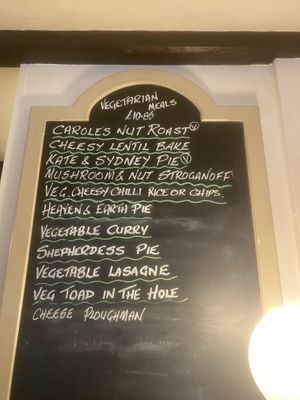 VEGETARIAN
MEALS
£10.85
CAROLES NUT ROAST Ⓥ
CHEESY LENTIL BAKE
KATE & SYDNEY PIE Ⓥ
MUSHROOM & NUT STROGANOFF
VEG. CHEESY CHILLI RICE OR CHIPS.
HEAVEN & EARTH PIE
VEGETABLE CURRY
SHEPHERDESS PIE
VEGETABLE LASAGNE
VEG TOAD IN THE HOLE
CHEESE PLOUGHMAN